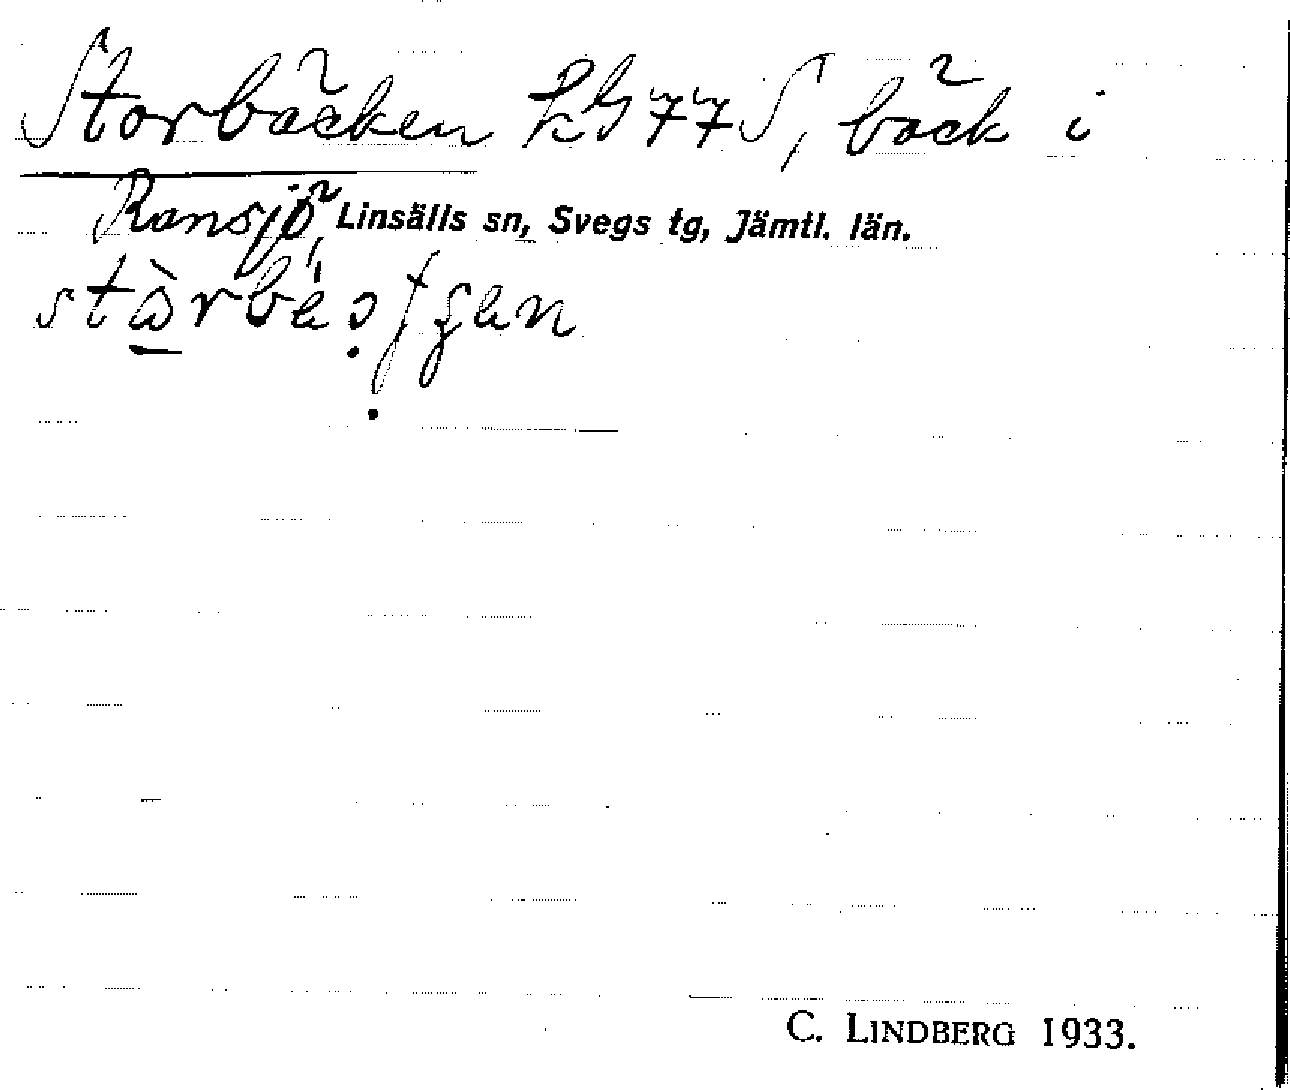 Storbäcken LG77S, bäck i
Ransjö, Linsälls sn, Svegs tg, Jämtl. län.
C. LINDBERG 1933.